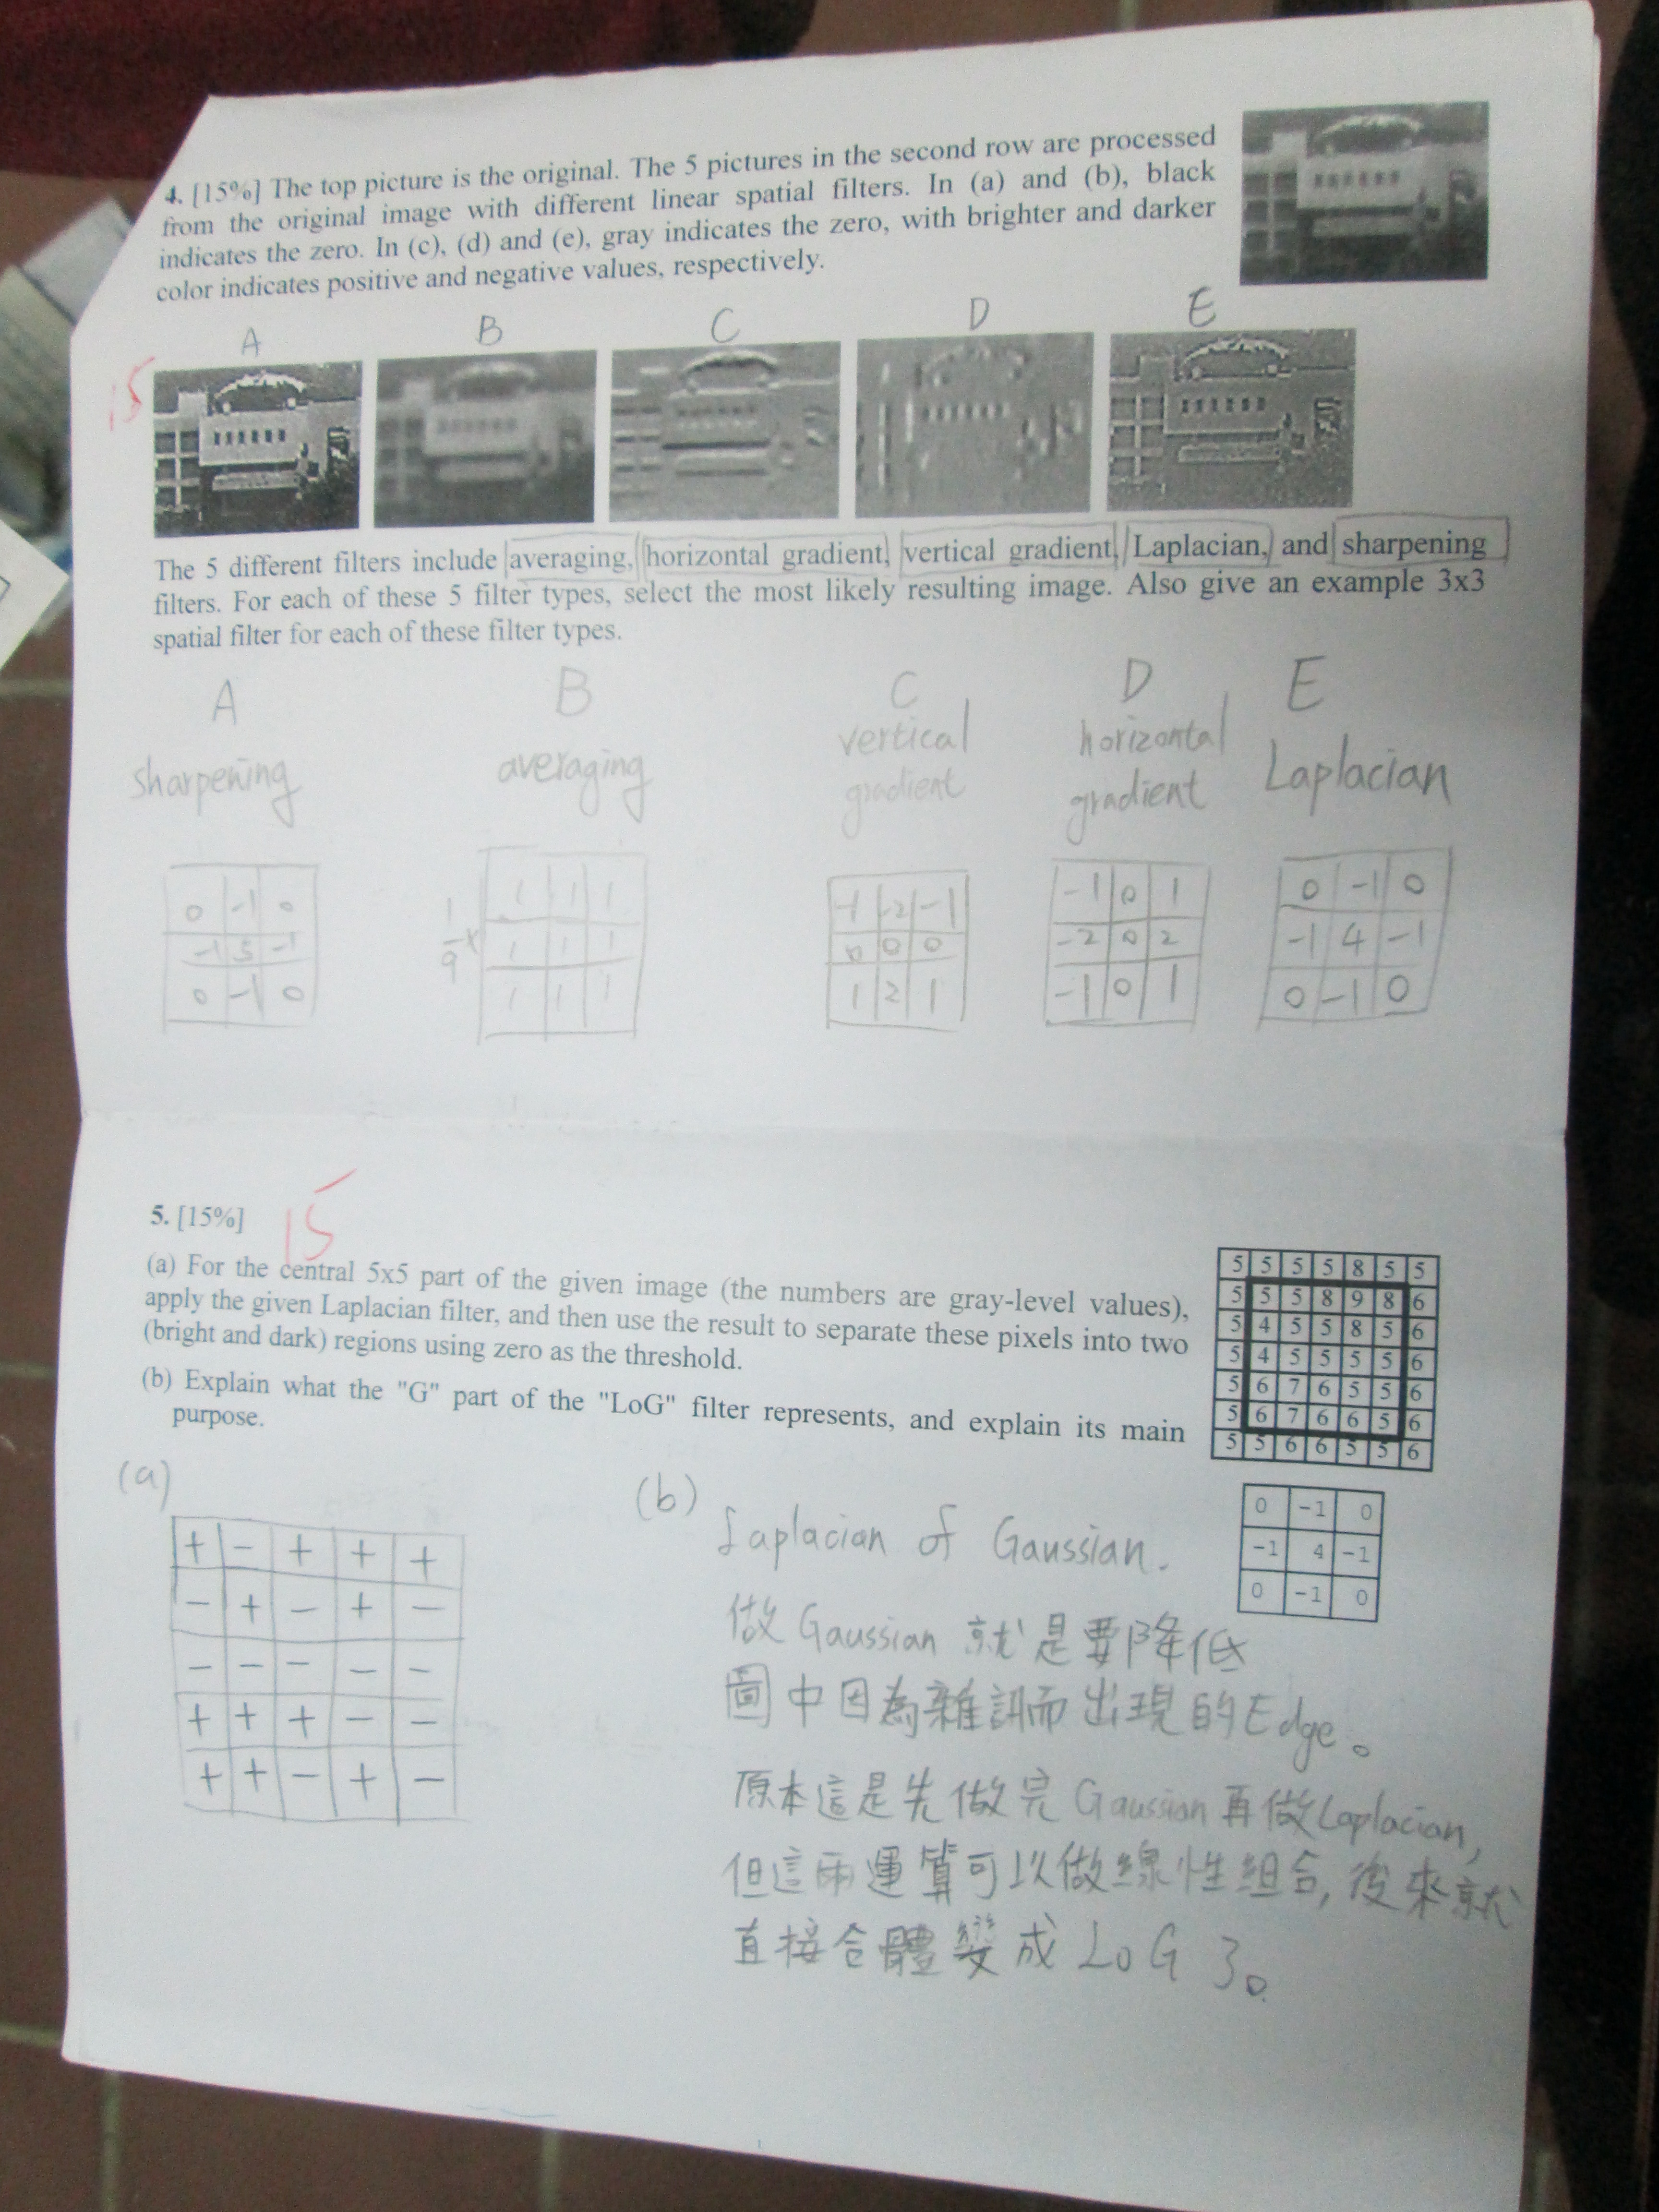 4. [15%] The top picture is the original. The 5 pictures in the second row are processed
from the original image with different linear spatial filters. In (a) and (b), black
indicates the zero. In (c), (d) and (e), gray indicates the zero, with brighter and darker
color indicates positive and negative values, respectively.
A B C D E
15
The 5 different filters include averaging, horizontal gradient, vertical gradient, Laplacian, and sharpening
filters. For each of these 5 filter types, select the most likely resulting image. Also give an example 3x3
spatial filter for each of these filter types.
A B C D E
sharpening averaging vertical gradient horizontal gradient Laplacian
0 -1 0
-1 5 -1
0 -1 0
1/9 x
1 1 1
1 1 1
1 1 1
-1 -2 -1
0 0 0
1 2 1
-1 0 1
-2 0 2
-1 0 1
0 -1 0
-1 4 -1
0 -1 0
5. [15%] 15
(a) For the central 5x5 part of the given image (the numbers are gray-level values),
apply the given Laplacian filter, and then use the result to separate these pixels into two
(bright and dark) regions using zero as the threshold.
(b) Explain what the "G" part of the "LoG" filter represents, and explain its main
purpose.
5 5 5 5 8 5 5
5 5 5 8 9 8 6
5 4 5 5 8 5 6
5 4 5 5 5 5 6
5 6 7 6 5 5 6
5 6 7 6 6 5 6
5 5 6 6 5 5 6
0 -1 0
-1 4 -1
0 -1 0
(a)
+ - + + +
- + - + -
- - - - -
+ + + - -
+ + - + -
(b)
Laplacian of Gaussian.
做Gaussian 就是要降低
圖中因為雜訊而出現的Edge。
原本這是先做完Gaussian再做Laplacian,
但這兩運算可以做線性組合,後來就
直接合體變成LoG了。